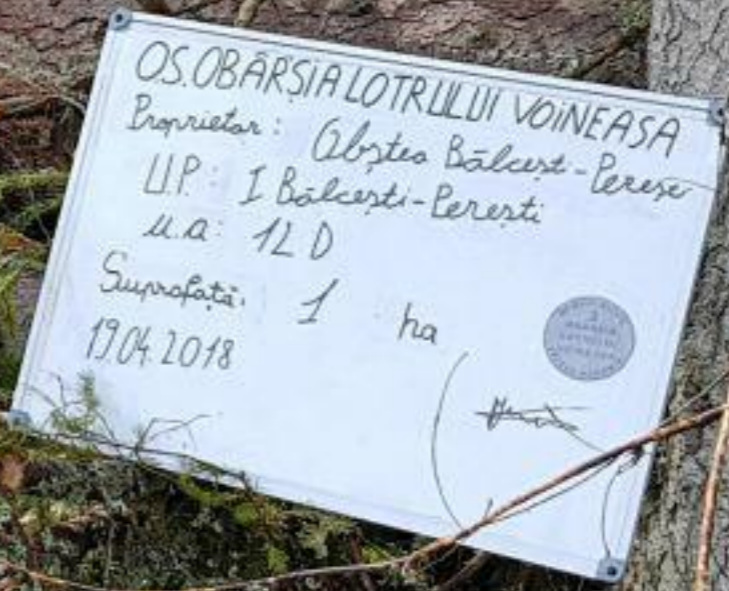 OS.OBÂRȘIA LOTRULUI VOINEASA
Proprietar: Obștea Bălcești-Perești
U.P.: I Bălcești-Perești
u.a: 12 D
Suprafață: 1 ha
19.04.2018